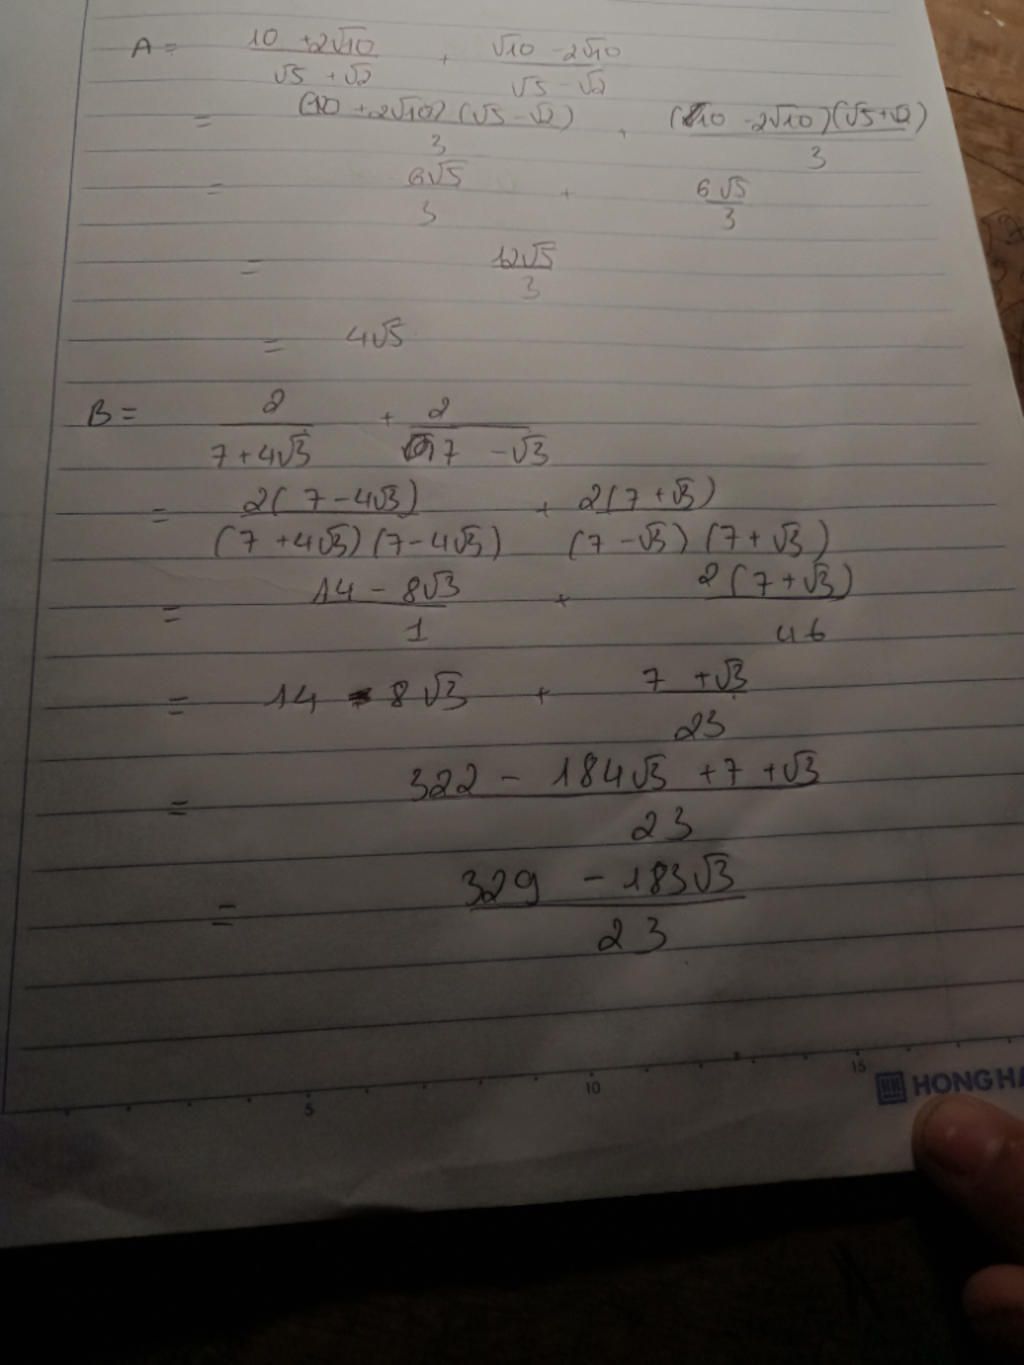 A = (10 + 2√10)/(√5 + √2) + (√10 - 2√10)/(√5 - √2)
= (10 + 2√10)(√5 - √2)/3 + (10 - 2√10)(√5 + √2)/3
= 6√5/3 + 6√5/3
= 12√5/3
= 4√5
B = 2/(7 + 4√3) + 2/(7 - √3)
= 2(7 - 4√3)/(7 + 4√3)(7 - 4√3) + 2(7 + √3)/(7 - √3)(7 + √3)
= (14 - 8√3)/1 + 2(7 + √3)/46
= 14 - 8√3 + (7 + √3)/23
= (322 - 184√3 + 7 + √3)/23
= (329 - 183√3)/23
5 10 15
HONG HA